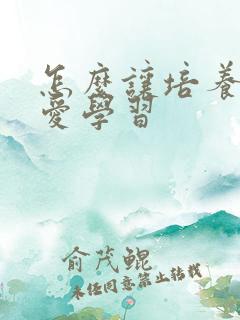 怎麼讓培養
愛學習
俞茂鲲
未经同意禁止转载